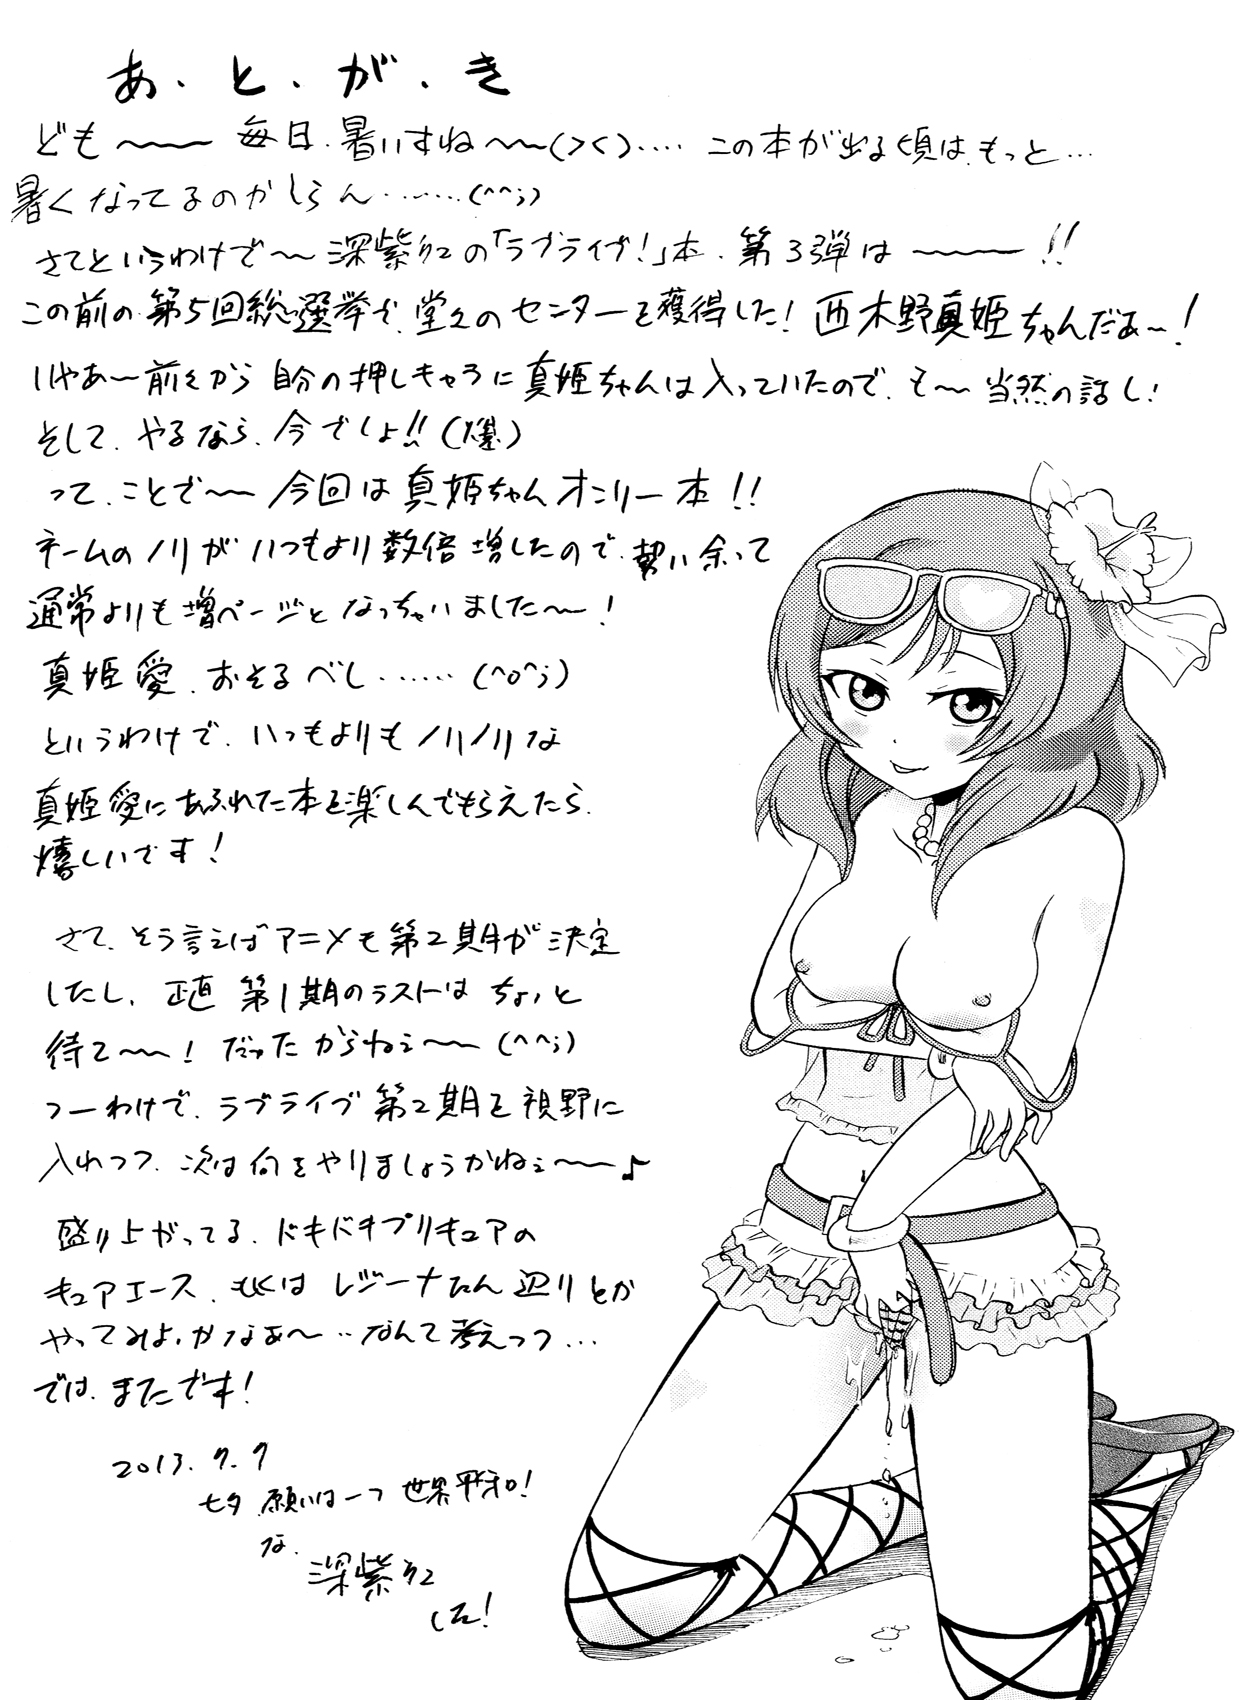 あ・と・が・き
ども〜〜〜 毎日、暑いすね〜〜(>く)‥‥ この本が出る頃は、もっと…
暑くなってるのかしらん‥‥‥(^^;)
さてというわけで〜〜深紫幻の「ラブライブ!」本、第3弾は〜〜〜!!
この前の第5回総選挙で、堂々のセンターを獲得した!西木野真姫ちゃんだぁ〜!
いやぁ〜前々から自分の押しキャラに真姫ちゃんは入っていたので、も〜当然の話し!
そして、やるなら、今でしょ!!(爆)
って、ことで〜〜今回は真姫ちゃんオンリー本!!
ネームのノリがいつもより数倍増したので、勢い余って
通常よりも増ページとなっちゃいました〜〜!
真姫愛、おそるべし‥‥‥(^o^;)
というわけで、いつもよりもノリノリな
真姫愛にあふれた本を楽しんでもらえたら、
嬉しいです!
さて、そう言えばアニメも第2期が決定
したし、正直 第1期のラストはちょいと
待て〜〜!だったからねぇ〜〜(^^;)
つーわけで、ラブライブ第2期を視野に
入れつつ、次は何をやりましょうかねぇ〜〜♪
盛り上がってる、ドキドキプリキュアの
キュアエース、もくはレジーナたん辺りとか
やってみよかなぁ〜‥なんて考えつつ…
では、またです!
2013.7.7
七夕 願いは一つ 世界平和!
な、
深紫幻
でた!